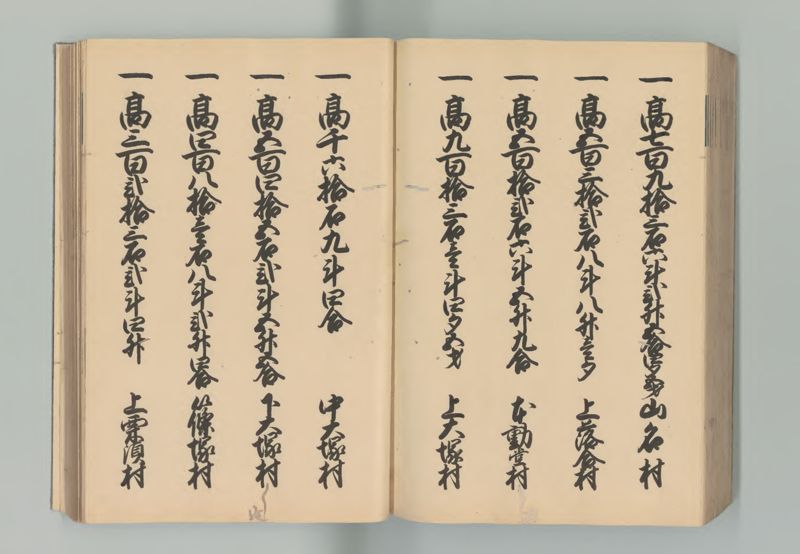 一 高七百九拾三石六斗弐升五合 山名村
一 高五百三拾弐石八斗八升壱夕 上落合村
一 高五百拾弐石六斗五升九合 本動堂村
一 高九百拾三石壱斗四夕五才 上大塚村
一 高千六拾石九斗四合 中大塚村
一 高五百四拾五石弐斗五升五合 下大塚村
一 高四百八拾壱石八斗弐升四合 篠塚村
一 高三百弐拾三石弐斗四升 上栗須村